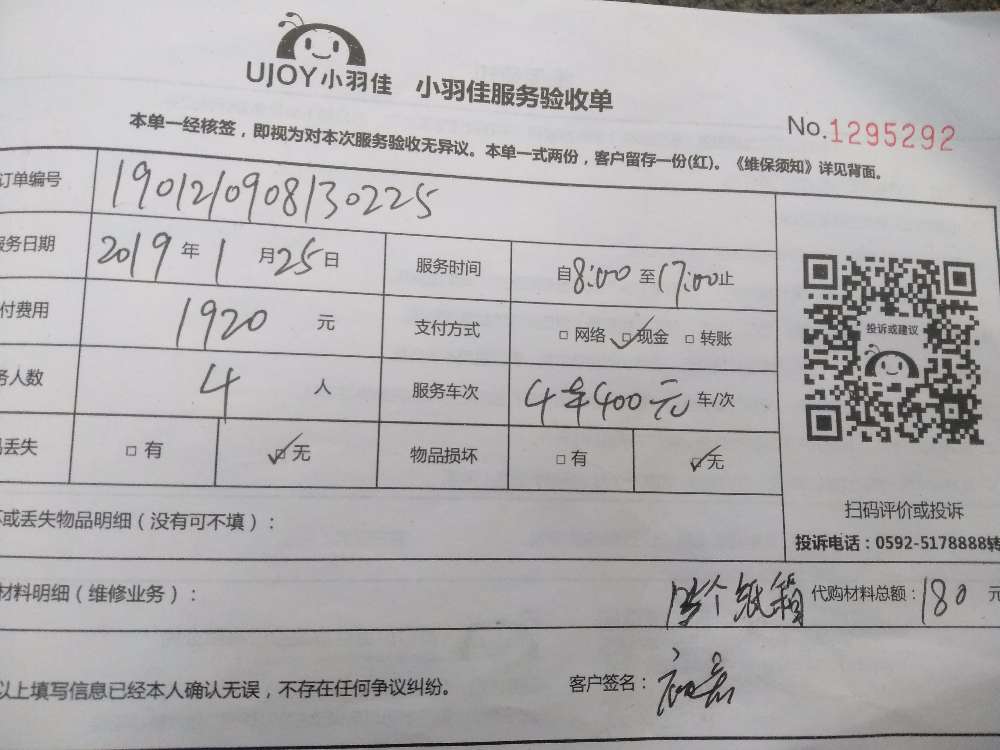 UJOY小羽佳 小羽佳服务验收单
No.1295292
本单一经核签，即视为对本次服务验收无异议。本单一式两份，客户留存一份(红)。《维保须知》详见背面。
订单编号 1901210908130225
服务日期 2019年1月25日 服务时间 自8:00至17:00止
付费用 1920 元 支付方式 □网络 ☑现金 □转账
务人数 4 人 服务车次 4车400元 车/次
丢失 □有 ☑无 物品损坏 □有 ☑无
投诉或建议
扫码评价或投诉
投诉电话：0592-5178888转
或丢失物品明细（没有可不填）：
材料明细（维修业务）： 个纸箱 代购材料总额：180 元
以上填写信息已经本人确认无误，不存在任何争议纠纷。 客户签名：